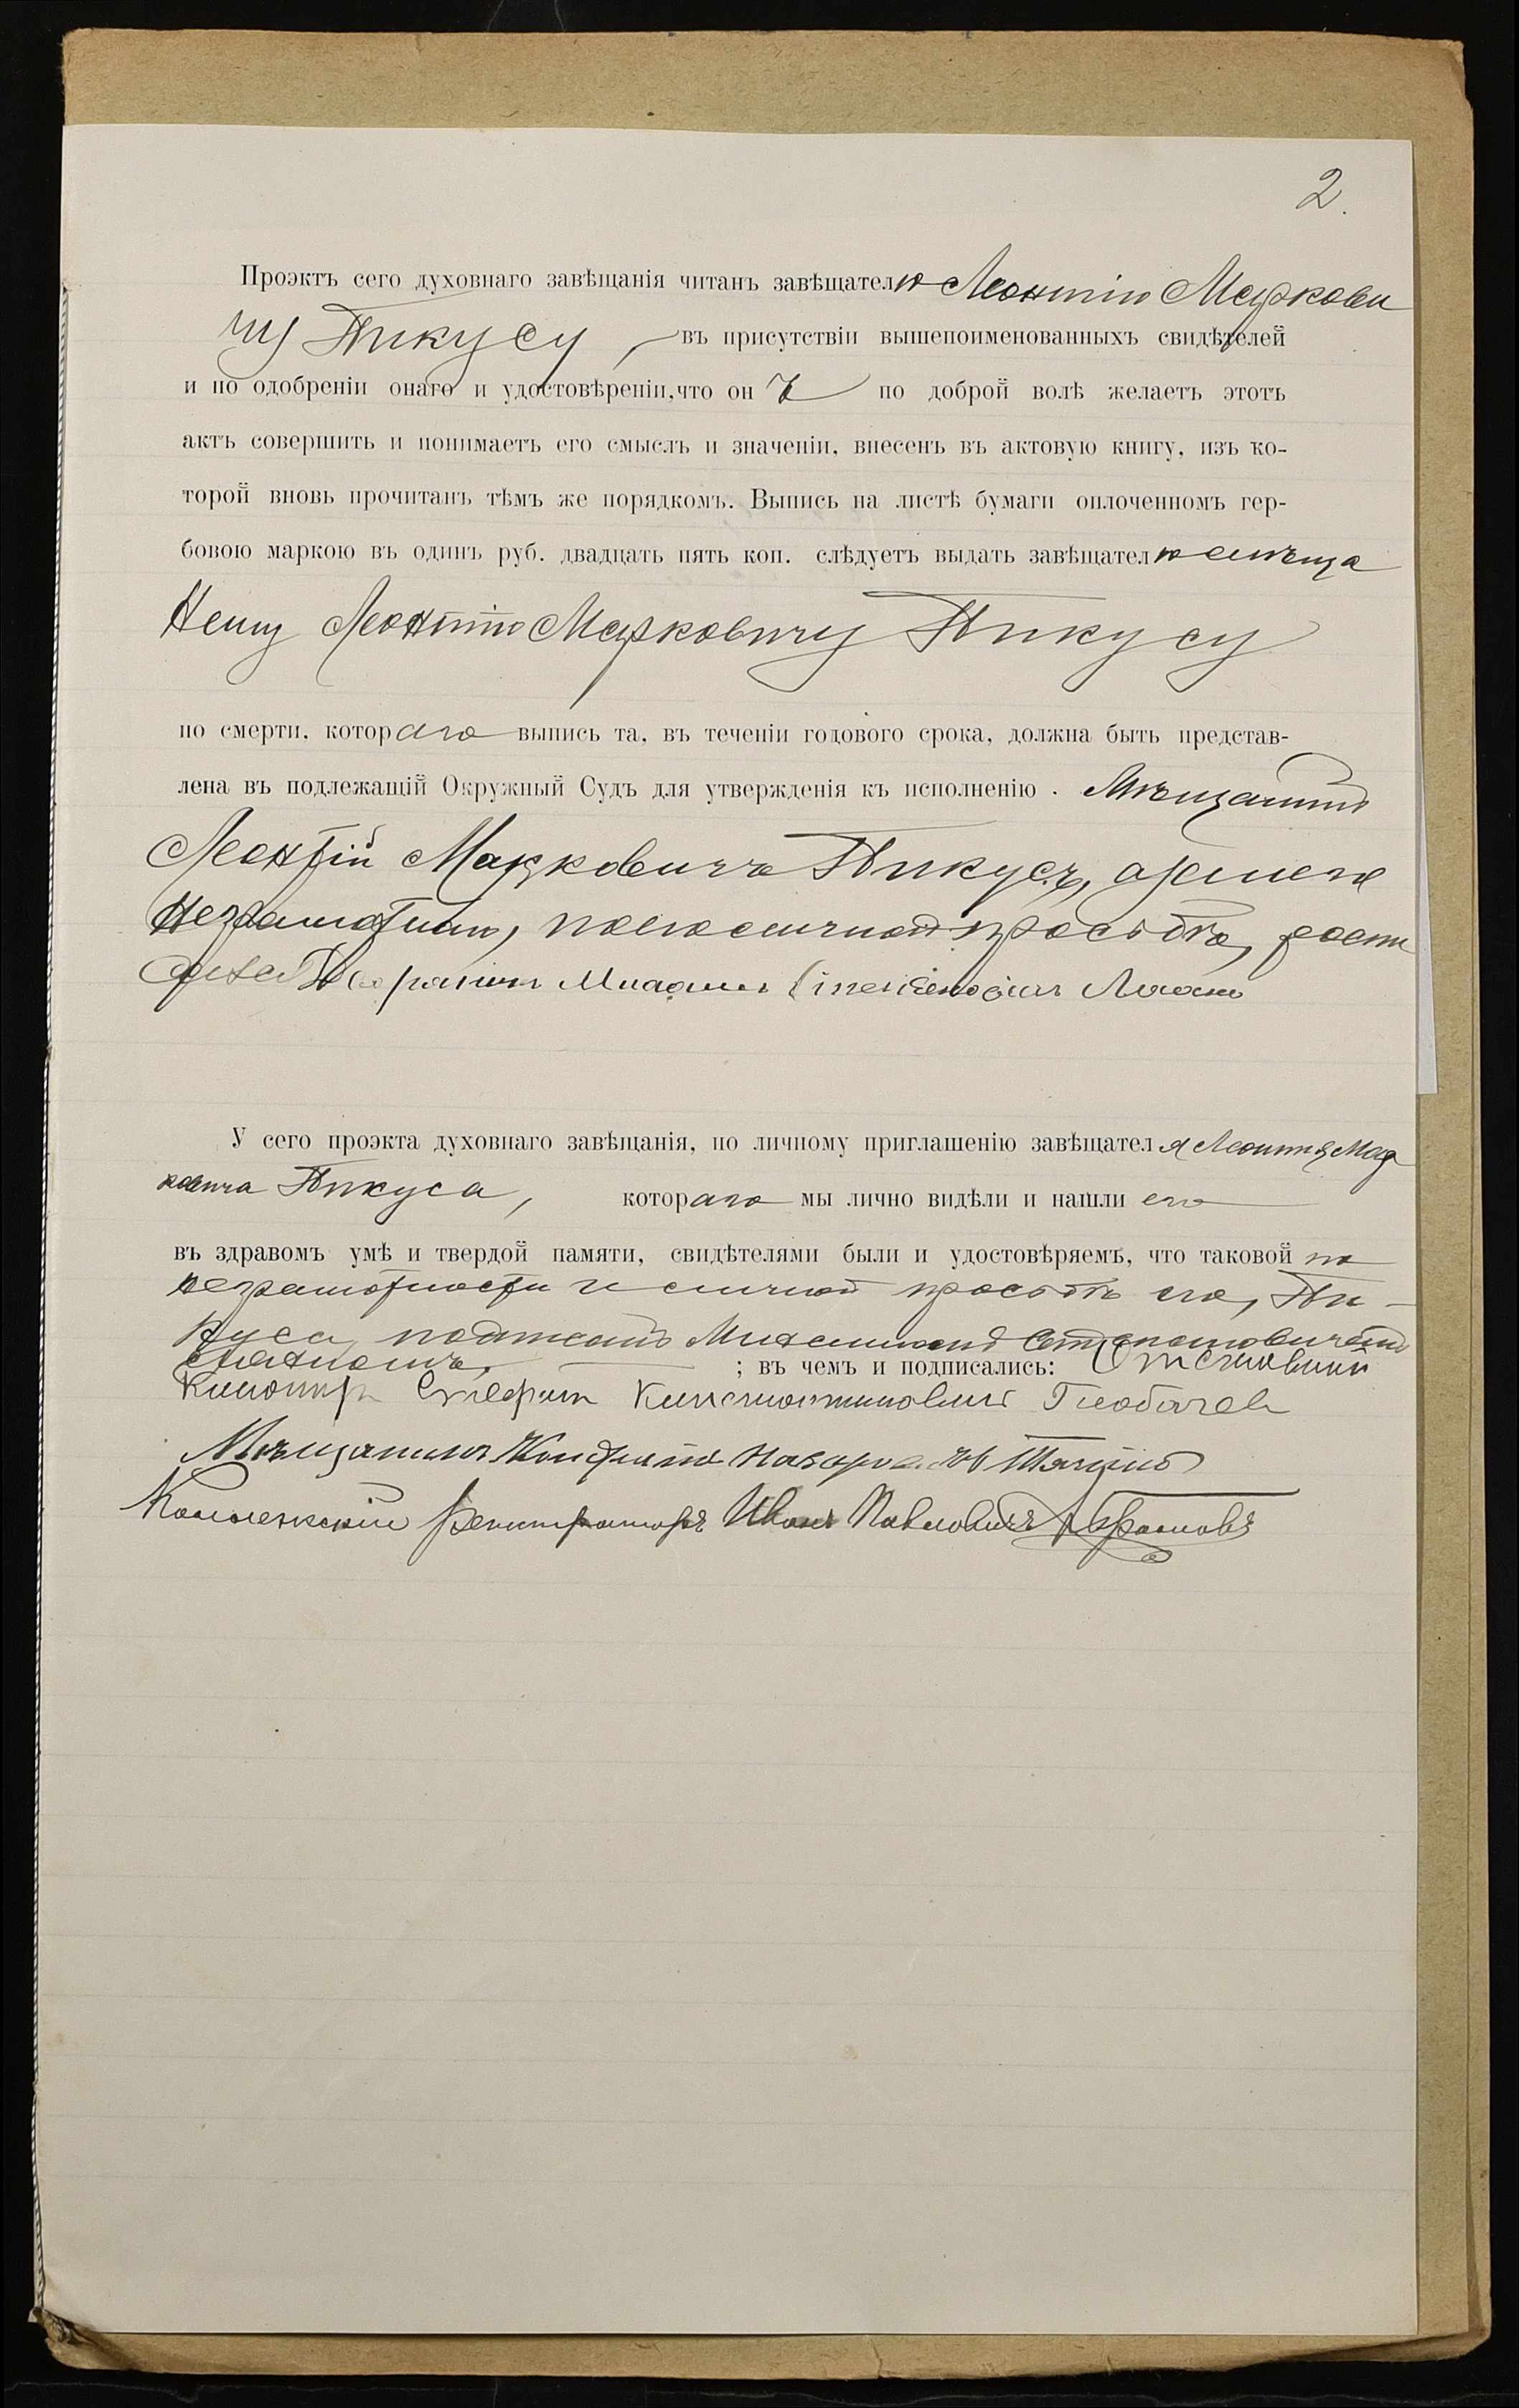 2.
Проэктъ сего духовнаго завѣщанія читанъ завѣщателю Леонтію Маркови
чу Пикусу, въ присутствіи вышепоименованныхъ свидѣтелей
и по одобреніи онаго и удостовѣреніи, что онъ по доброй волѣ желаетъ этотъ
актъ совершить и понимаетъ его смыслъ и значеніи, внесенъ въ актовую книгу, изъ ко-
торой вновь прочитанъ тѣмъ же порядкомъ. Выпись на листѣ бумаги оплоченномъ гер-
бовою маркою въ одинъ руб. двадцать пять коп. слѣдуетъ выдать завѣщателю мѣща
нину Леонтію Марковичу Пикусу
по смерти, котораго выпись та, въ теченіи годового срока, должна быть представ-
лена въ подлежащій Окружный Судъ для утвержденія къ исполненію. Мѣщанинъ
Леонтій Марковичъ Пикусъ, а за него
неграмотнаго, по его личной просьбѣ, роспи
У сего проэкта духовнаго завѣщанія, по личному приглашенію завѣщателя Леонтія Мар
ковича Пикуса, котораго мы лично видѣли и нашли его
въ здравомъ умѣ и твердой памяти, свидѣтелями были и удостовѣряемъ, что таковой по
неграмотности и личной просьбѣ его, Пи-
куса, подписанъ
; въ чемъ и подписались:
Константиновичъ
Мѣщанинъ
Коллежскій регистраторъ Иванъ Павловичъ Абрамовъ